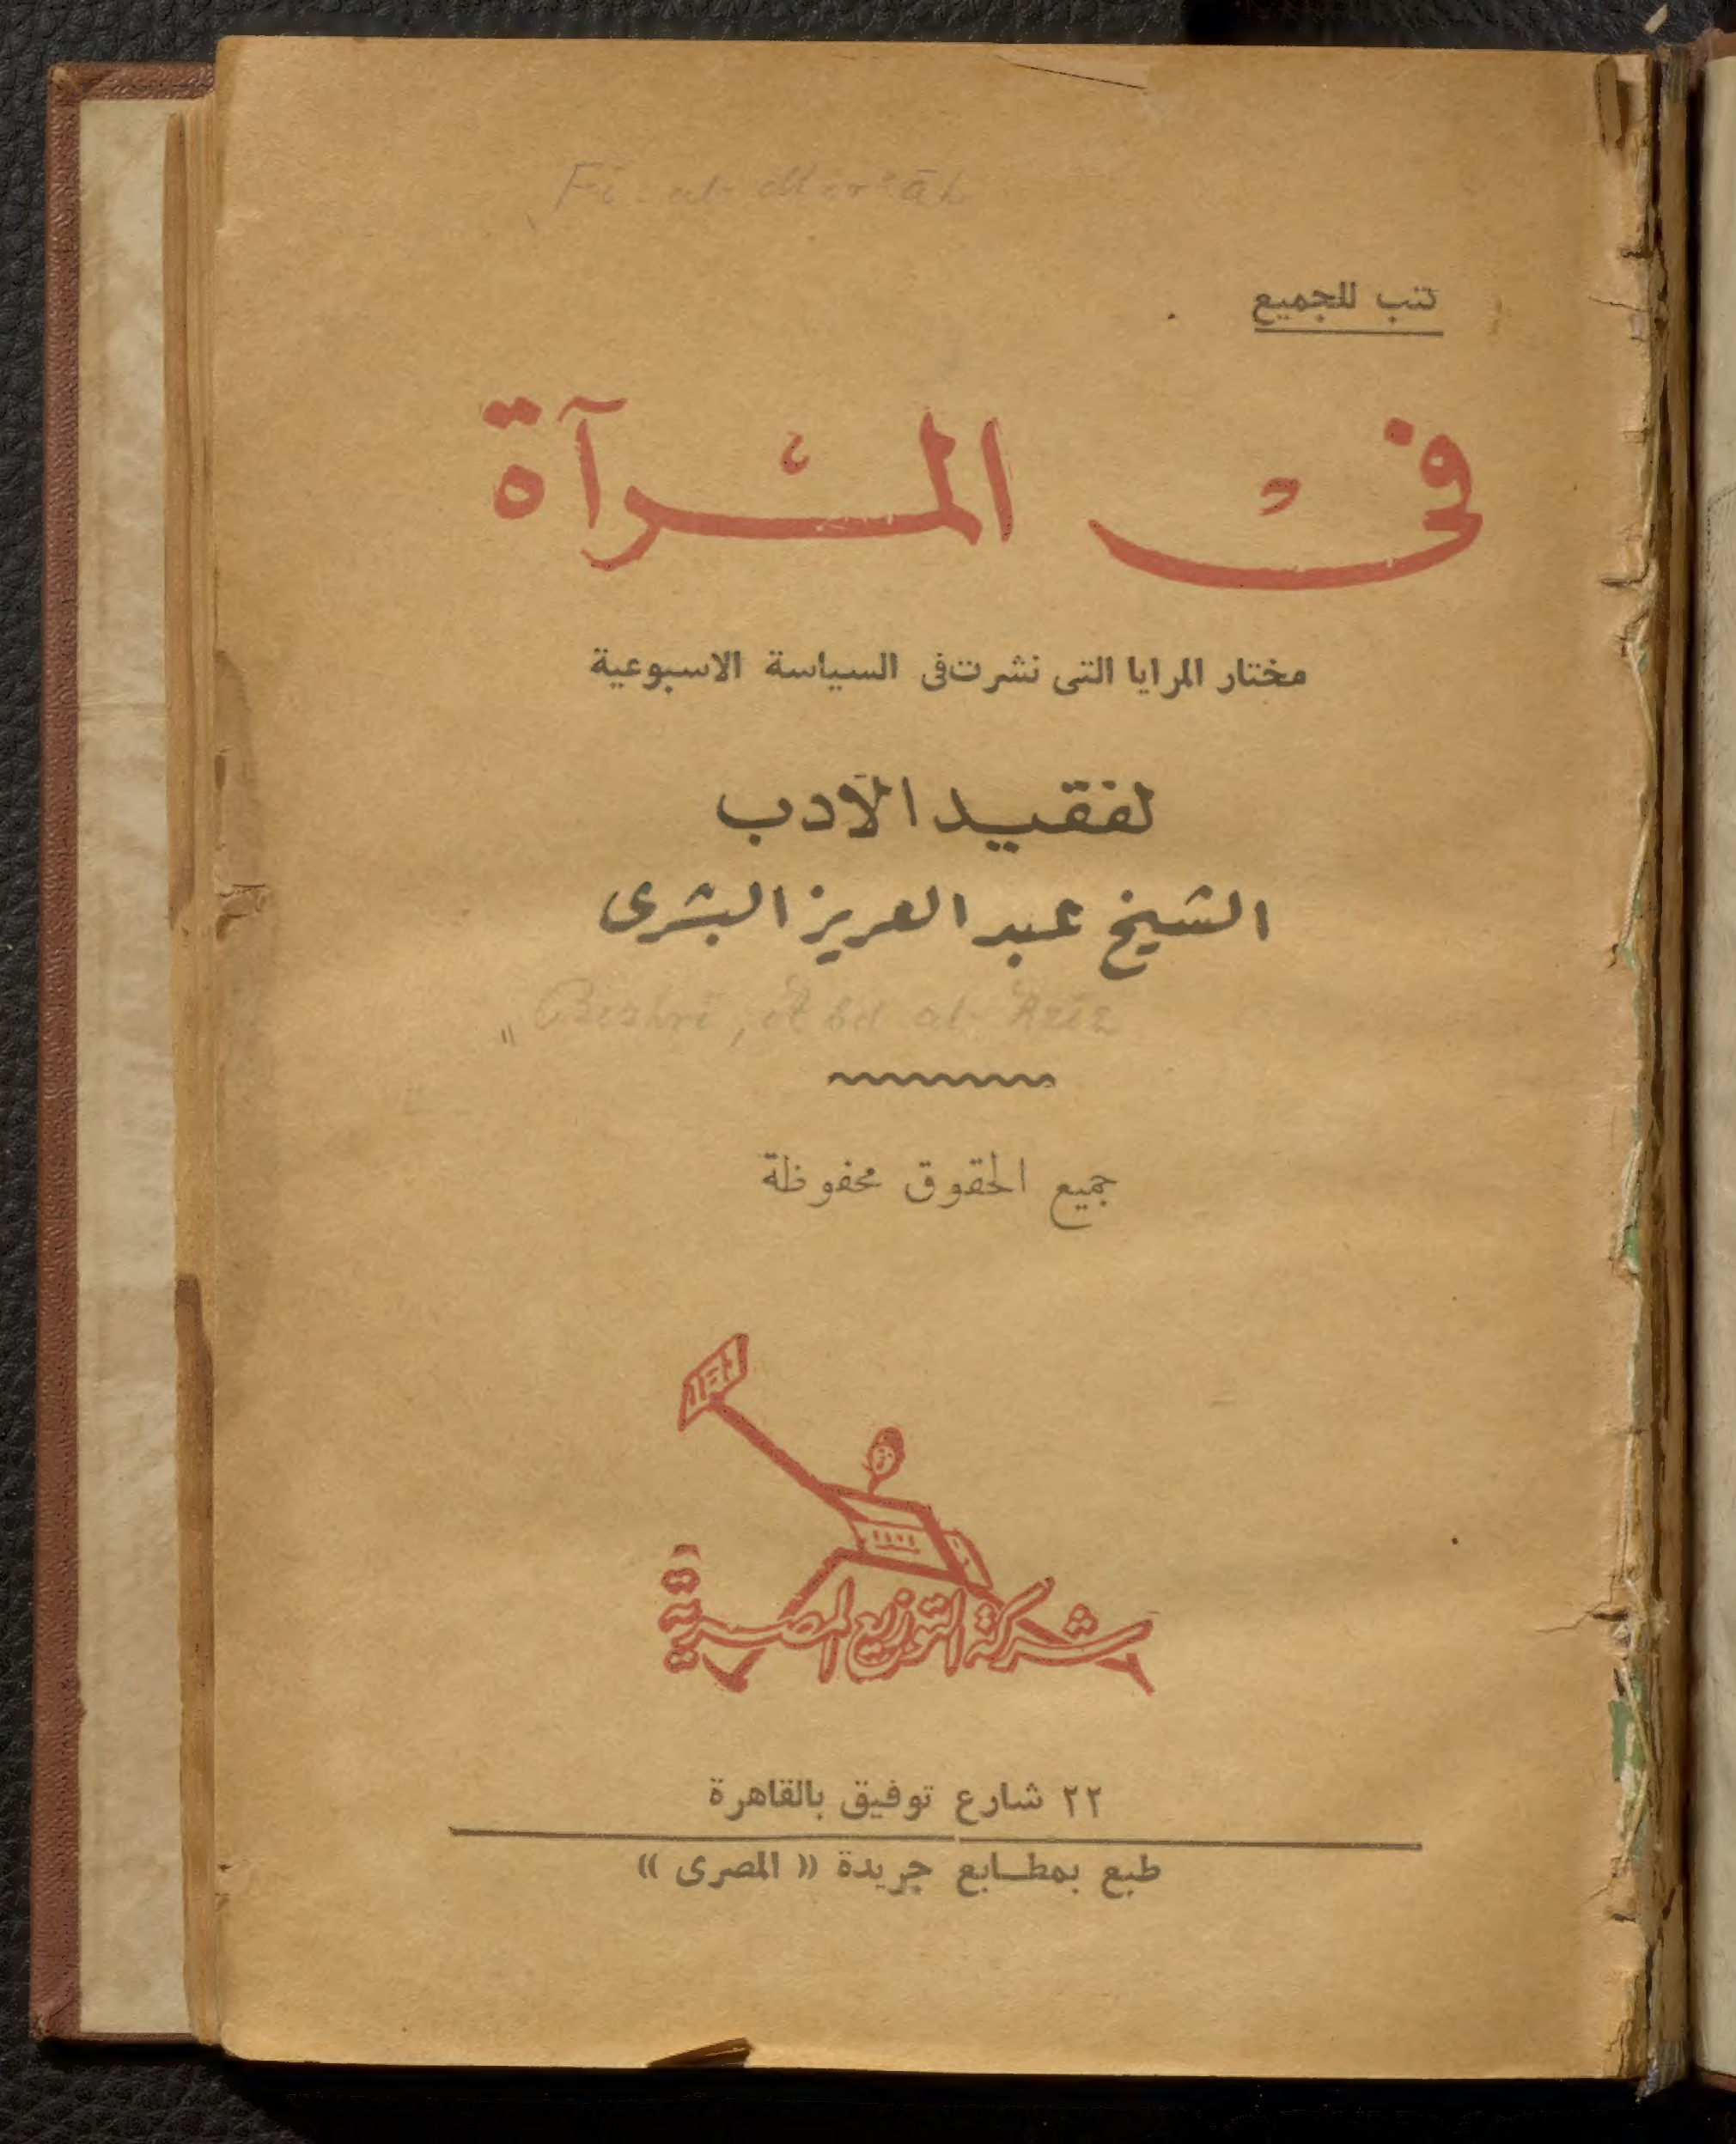 Fi al-Mer'āh
كتب للجميع
فى المرآة
مختار المرايا التى نشرت فى السياسة الاسبوعية
لفقيد الأدب
الشيخ عبد العزيز البشرى
Bishri, Abd al-Aziz
جميع الحقوق محفوظة
شركة التوزيع المصرية
٢٢ شارع توفيق بالقاهرة
طبع بمطابع جريدة « المصرى »